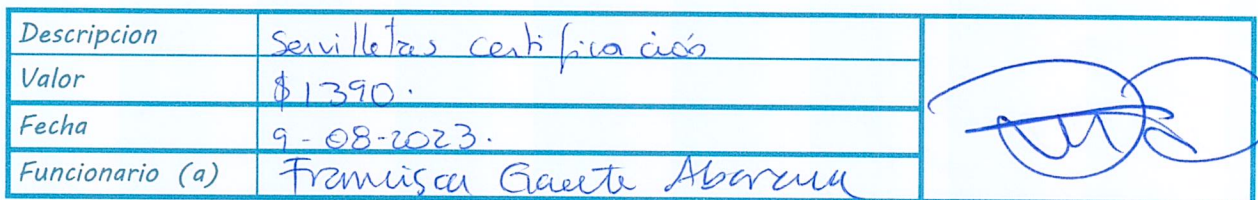 Descripcion Servilletas certificación
Valor $1390.
Fecha 9-08-2023.
Funcionario (a) Francisca Gaete Abarca